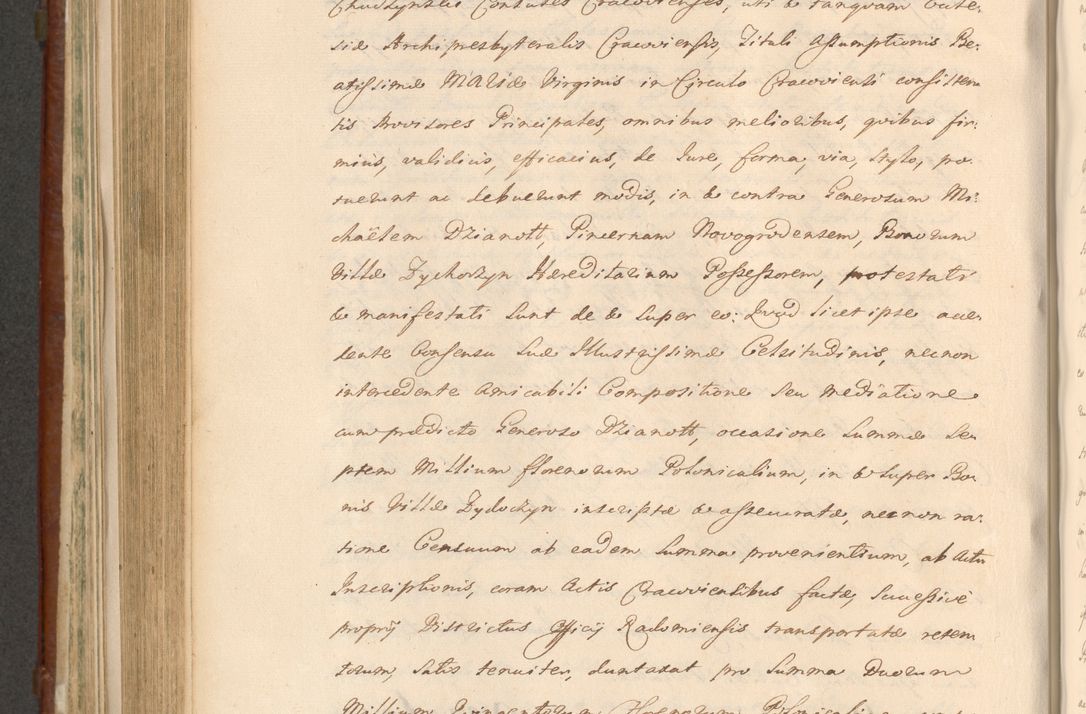 Chudzynski Consules Cracovienses, uti & tanquam Eccle-
siæ Archipresbyteralis Cracoviensis, Tituli Assumptionis Be-
atissimæ MARIÆ Virginis in Circulo Cracoviensi consisten
tis Provisores Principales, omnibus melioribus, quibus fir-
mius, validius, efficacius, de Jure, forma, via, stylo, po-
tuerunt ac debuerunt modis, in & contra Generosum Mi-
chaëlem Dzianott, Pincernam Novogrodensem, Bonorum
Villæ Zychorzyn Hæreditarium Possessorem, protestati
& manifestati sunt de & super eo: Quod licet ipse acce-
dente Consensu Suæ Illustrissimæ Celsitudinis, necnon
intercedente amicabili Compositione seu mediatione
cum prædicto Generoso Dzianott, occasione Summæ Se-
ptem Millium florenorum Polonicalium, in & super Bo-
nis Villæ Zydoczyn inscriptæ & asseuratæ, necnon ra-
tione Censuum ab eadem Summa provenientium, ab Actu
Inscriptionis, coram Actis Cracoviensibus factæ, successivè
proprij Districtus Officij Radomiensis transportatæ reten
torum, satis tenuiter, duntaxat pro Summa Duorum
Millium Quingentorum Florenorum